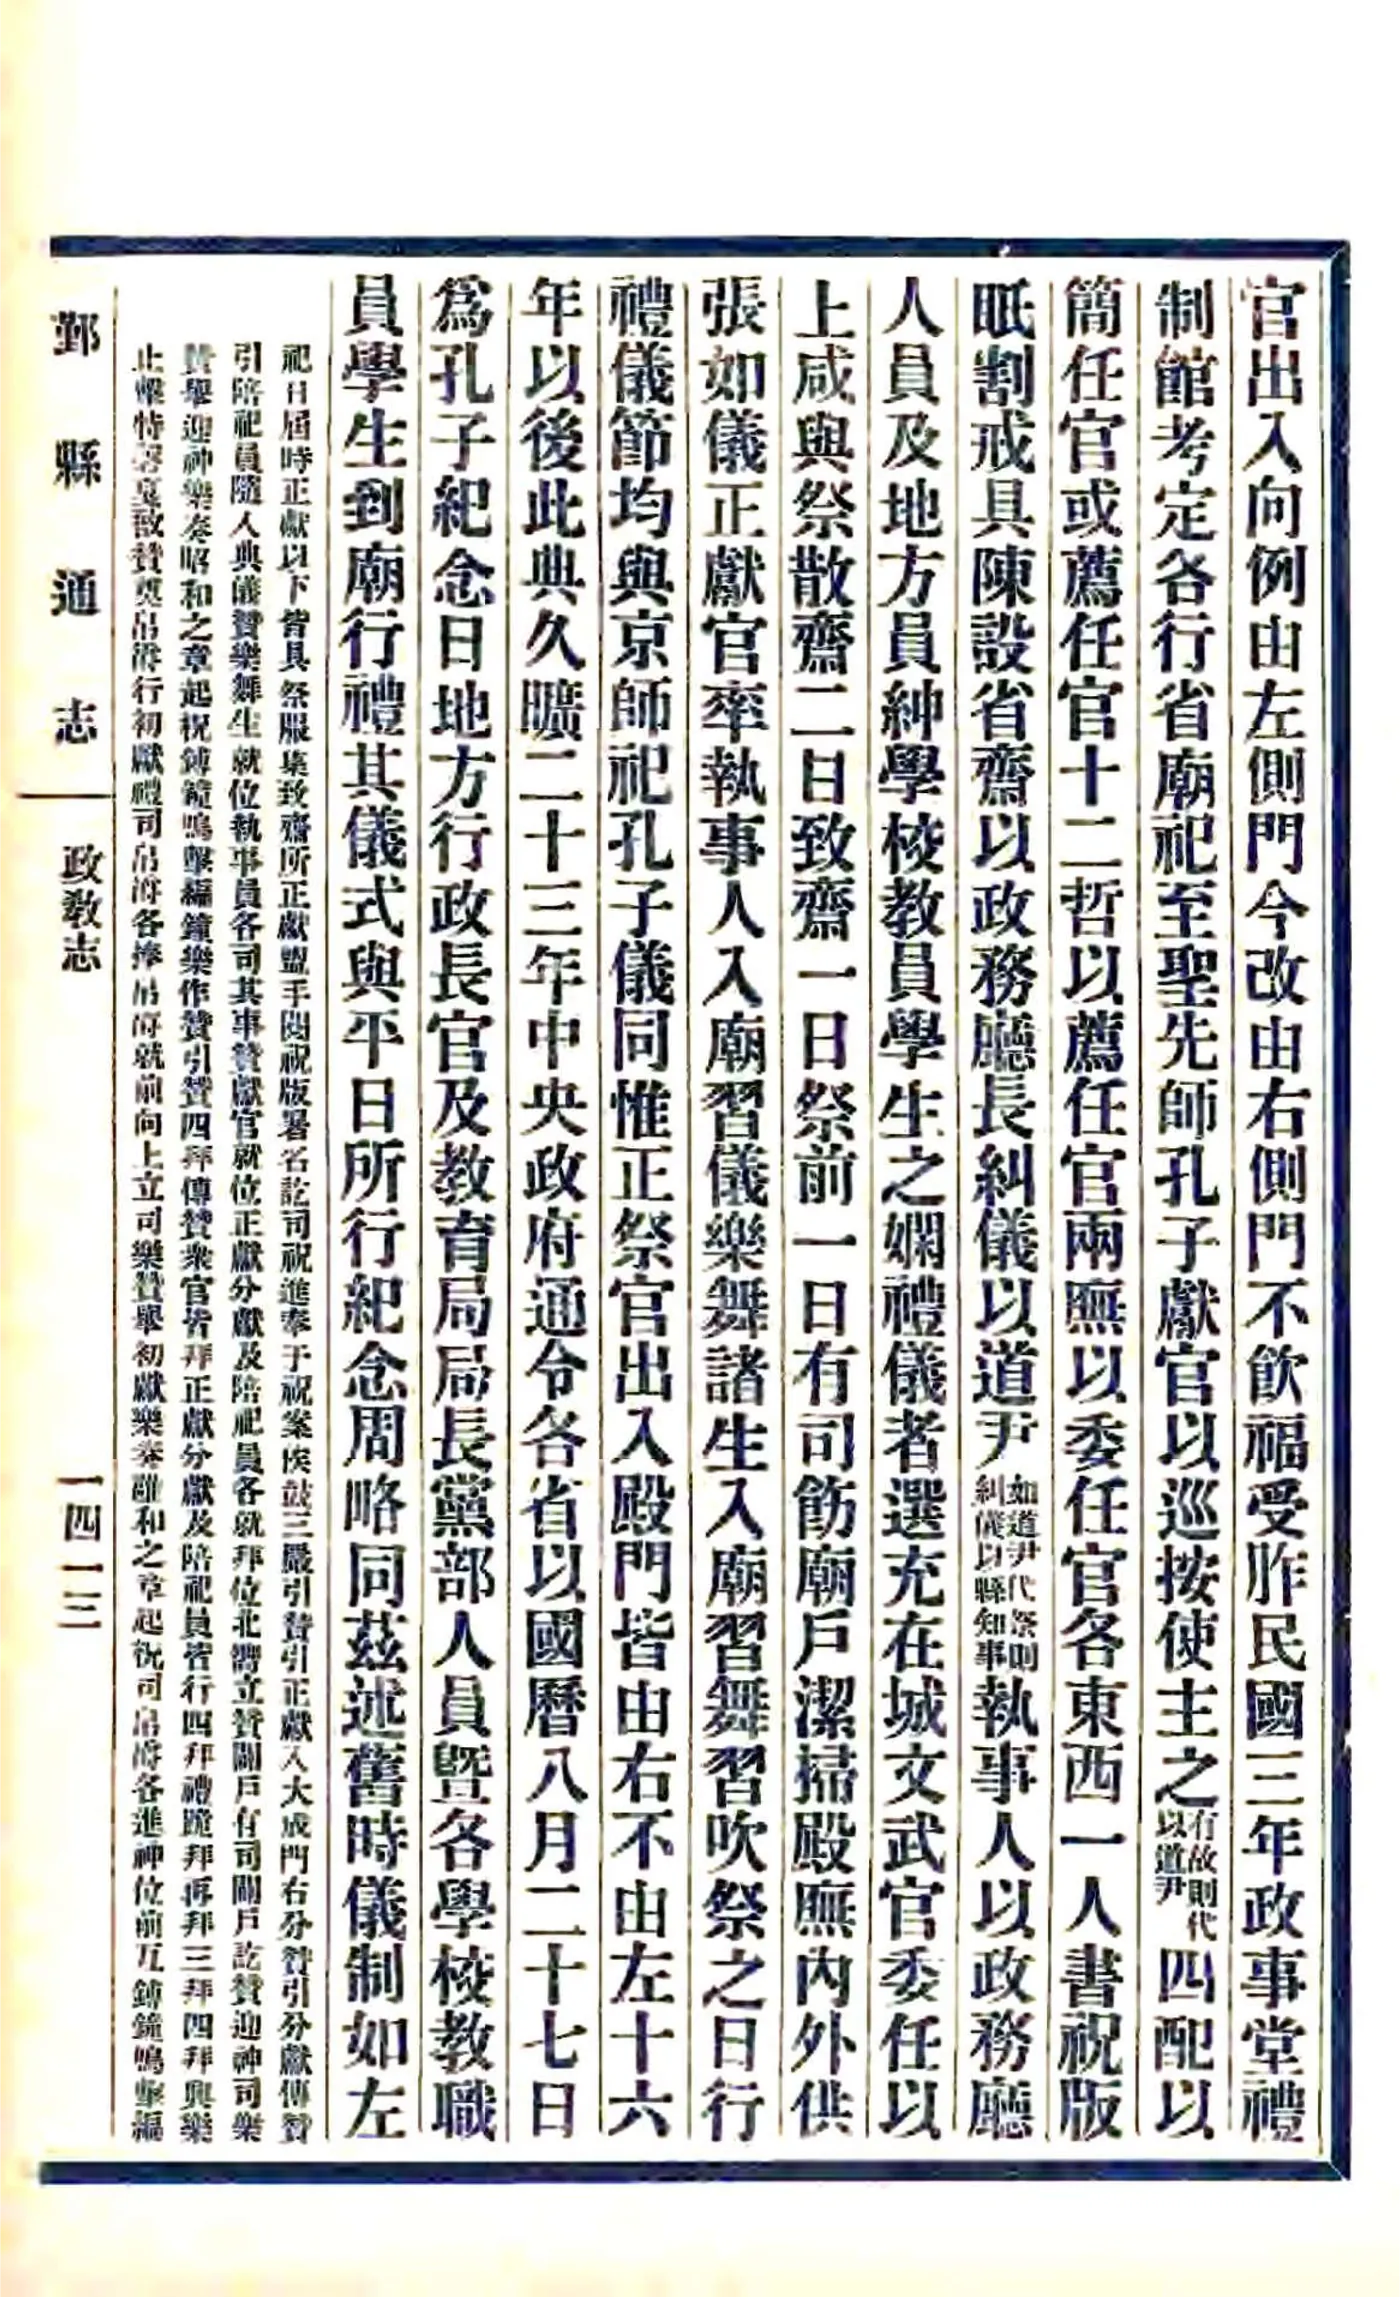 官出入向例由左側門今改由右側門不飲福受胙民國三年政事堂禮
制館考定各行省廟祀至聖先師孔子獻官以巡按使主之有故則代以道尹四配以
簡任官或薦任官十二哲以薦任官兩廡以委任官各東西一人書祝版
眡割戒具陳設省齋以政務廳長糾儀以道尹如道尹代祭則糾儀以縣知事執事人以政務廳
人員及地方員紳學校教員學生之嫻禮儀者選充在城文武官委任以
上咸與祭散齋二日致齋一日祭前一日有司飭廟戶潔掃殿廡內外供
張如儀正獻官率執事人入廟習儀樂舞諸生入廟習舞習吹祭之日行
禮儀節均與京師祀孔子儀同惟正祭官出入殿門皆由右不由左十六
年以後此典久曠二十三年中央政府通令各省以國曆八月二十七日
爲孔子紀念日地方行政長官及教育局局長黨部人員暨各學校教職
員學生到廟行禮其儀式與平日所行紀念周略同茲述舊時儀制如左
祀日屆時正獻以下皆具祭服集致齋所正獻盥手閱祝版署名訖司祝進奉于祝案俟鼓三嚴引贊引正獻入大成門右分贊引分獻傳贊
引陪祀員隨入典儀贊樂舞生就位執事員各司其事贊獻官就位正獻分獻及陪祀員各就拜位北嚮立贊闢戶有司闢戶訖贊迎神司樂
贊舉迎神樂奏昭和之章起柷鎛鐘鳴擊編鐘樂作贊引贊四拜傳贊衆官皆拜正獻分獻及陪祀員皆行四拜禮跪拜再拜三拜四拜興樂
止擊特磬戛敔贊奠帛爵行初獻禮司帛爵各捧帛爵就前向上立司樂贊舉初獻樂奏雝和之章起柷司帛爵各進神位前立鎛鐘鳴擊編
鄞縣通志
政教志
一四一三